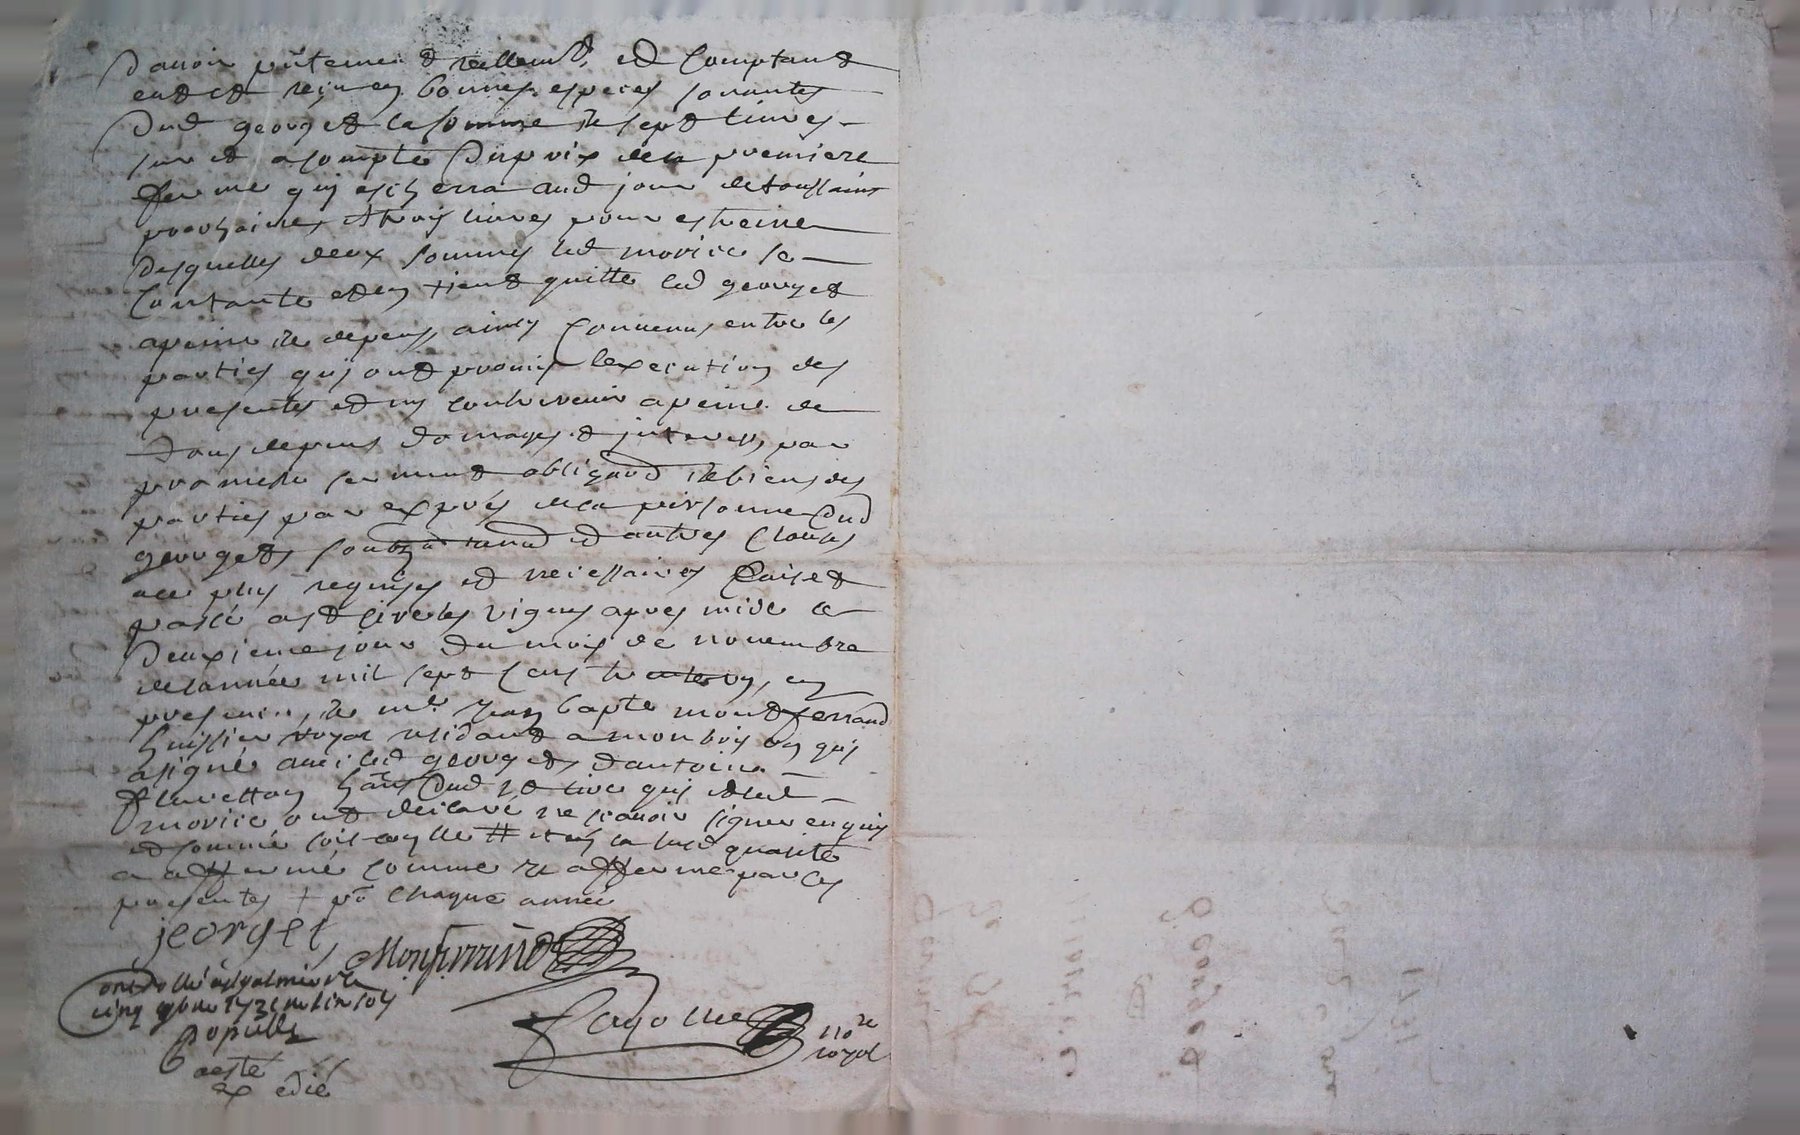 Davoir pntement & reellemt et comptant
eut et reçu en bonnes especes sonnantes
dud georget la somme de sept livres
sur et acompte du prix de la premiere
ferme quj escherra aud jour de toussaint
prochaines & trois livres pour estreine
desquelles deux sommes led morice se
contante et en tient quitte led georget
apeine de depens, ainsy convenus entre les
parties quj ont promis lexecution des
presentes et ny contrevenir apeine de
tous depens domages & jnterets par
promesse serment obligand de biens des
parties par exprés de la personne dud
georget et autres clauses
requises et necessaires fait et
passé a st cire les vignes apres midi le
deuxieme jour du mois de novembre
de lannée mil sept cens trente un, en
presence, de me jean bapte montferrand
huissier royal residant a monbrison quj
a signé avec led georget & antoine
dud st cire quj et led
morice ont declaré ne scavoir signer enquis
et sommé # et en la susd qualité
a affermé comme il afferme par ces
presentes + pr chaque année
jeorget
Monferrand
controllé a st galmier le
cinq 9bre 1731
no.re
royal
esté
expedié